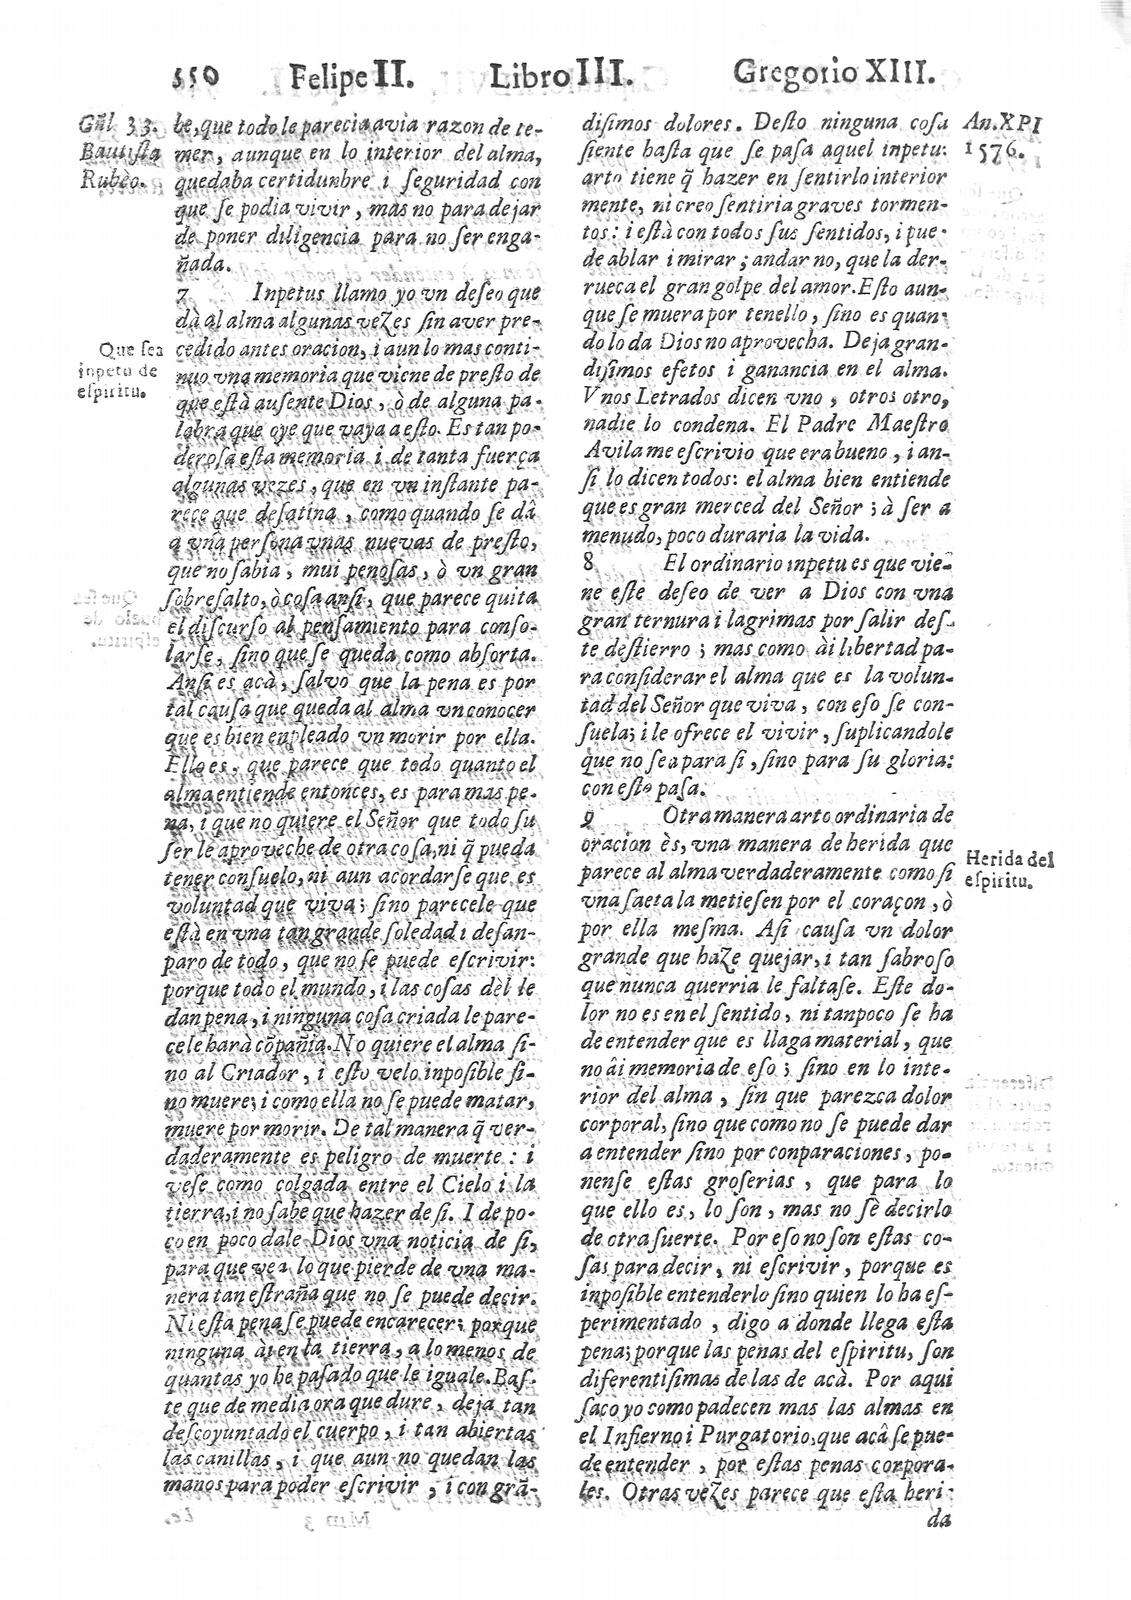 550 Felipe II. Libro III. Gregorio XIII.
Gñl 33.
Bautista
Rubèo.
be, que todo le parecia avia razon de te-
mer, aunque en lo interior del alma,
quedaba certidunbre i ſeguridad con
que ſe podia vivir, mas no para dejar
de poner diligencia para no ſer enga-
ñada.
7 Inpetus llamo yo vn deſeo que
dà al alma algunas vezes ſin aver pre-
cedido antes oracion, i aun lo mas conti-
nuo vna memoria que viene de preſto de
que eſtà auſente Dios, ò de alguna pa-
labra que oye que vaya a eſto. Es tan po-
deroſa eſta memoria i de tanta fuerça
algunas vezes, que en vn inſtante pa-
rece que deſatina, como quando ſe dà
a vna perſona vnas nuevas de preſto,
que no ſabia, mui penoſas, ò vn gran
ſobreſalto, ò coſa anſi, que parece quita
el diſcurſo al penſamiento para conſo-
larſe, ſino que ſe queda como abſorta.
Anſi es acà, ſalvo que la pena es por
tal cauſa que queda al alma vn conocer
que es bien enpleado vn morir por ella.
Ello es, que parece que todo quanto el
alma entiende entonces, es para mas pe-
na, i que no quiere el Señor que todo ſu
ſer le aproveche de otra coſa, ni q̃ pueda
tener conſuelo, ni aun acordarſe que es
voluntad que viva; ſino parecele que
eſtà en vna tan grande ſoledad i deſan-
paro de todo, que no ſe puede eſcrivir:
porque todo el mundo, i las coſas dèl le
dan pena, i ninguna coſa criada le pare-
ce le harà cõpañia. No quiere el alma ſi-
no al Criador, i eſto velo inpoſible ſi-
no muere; i como ella no ſe puede matar,
muere por morir. De tal manera q̃ ver-
daderamente es peligro de muerte: i
veſe como colgada entre el Cielo i la
tierra, i no ſabe que hazer de ſi. I de po-
co en poco dale Dios vna noticia de ſi,
para que vea lo que pierde de vna ma-
nera tan eſtraña que no ſe puede decir.
Ni eſta pena ſe puede encarecer; porque
ninguna ài en la tierra, a lo menos de
quantas yo he paſado que le iguale. Baſ-
te que de media ora que dure, deja tan
deſcoyuntado el cuerpo, i tan abiertas
las canillas, i que aun no quedan las
manos para poder eſcrivir, i con grã-
Que ſea
inpetu de
eſpiritu.
diſimos dolores. Deſto ninguna coſa
ſiente haſta que ſe paſa aquel inpetu:
arto tiene q̃ hazer en ſentirlo interior
mente, ni creo ſentiria graves tormen-
tos: i eſtà con todos ſus ſentidos, i pue-
de ablar i mirar; andar no, que la der-
rueca el gran golpe del amor. Eſto aun-
que ſe muera por tenello, ſino es quan-
do lo da Dios no aprovecha. Deja gran-
diſimos efetos i ganancia en el alma.
Vnos Letrados dicen vno, otros otro,
nadie lo condena. El Padre Maeſtro
Avila me eſcrivio que era bueno, i an-
ſi lo dicen todos: el alma bien entiende
que es gran merced del Señor; à ſer a
menudo, poco duraria la vida.
8 El ordinario inpetu es que vie-
ne eſte deſeo de ver a Dios con vna
gran ternura i lagrimas por ſalir deſ-
te deſtierro; mas como ài libertad pa-
ra conſiderar el alma que es la volun-
tad del Señor que viva, con eſo ſe con-
ſuela; i le ofrece el vivir, ſuplicandole
que no ſea para ſi, ſino para ſu gloria:
con eſto paſa.
9 Otra manera arto ordinaria de
oracion ès, vna manera de herida que
parece al alma verdaderamente como ſi
vna ſaeta la metieſen por el coraçon, ò
por ella meſma. Aſi cauſa vn dolor
grande que haze quejar, i tan ſabroſo
que nunca querria le faltaſe. Eſte do-
lor no es en el ſentido, ni tanpoco ſe ha
de entender que es llaga material, que
no ài memoria de eſo; ſino en lo inte-
rior del alma, ſin que parezca dolor
corporal, ſino que como no ſe puede dar
a entender ſino por conparaciones, po-
nenſe eſtas groſerias, que para lo
que ello es, lo ſon, mas no ſè decirlo
de otra ſuerte. Por eſo no ſon eſtas co-
ſas para decir, ni eſcrivir, porque es
inpoſible entenderlo ſino quien lo ha eſ-
perimentado, digo a donde llega eſta
pena; porque las penas del eſpiritu, ſon
diferentiſimas de las de acà. Por aqui
ſaco yo como padecen mas las almas en
el Infierno i Purgatorio, que acà ſe pue-
de entender, por eſtas penas corpora-
les. Otras vezes parece que eſta heri-
da
An. XPI
1576.
Herida del
eſpiritu.